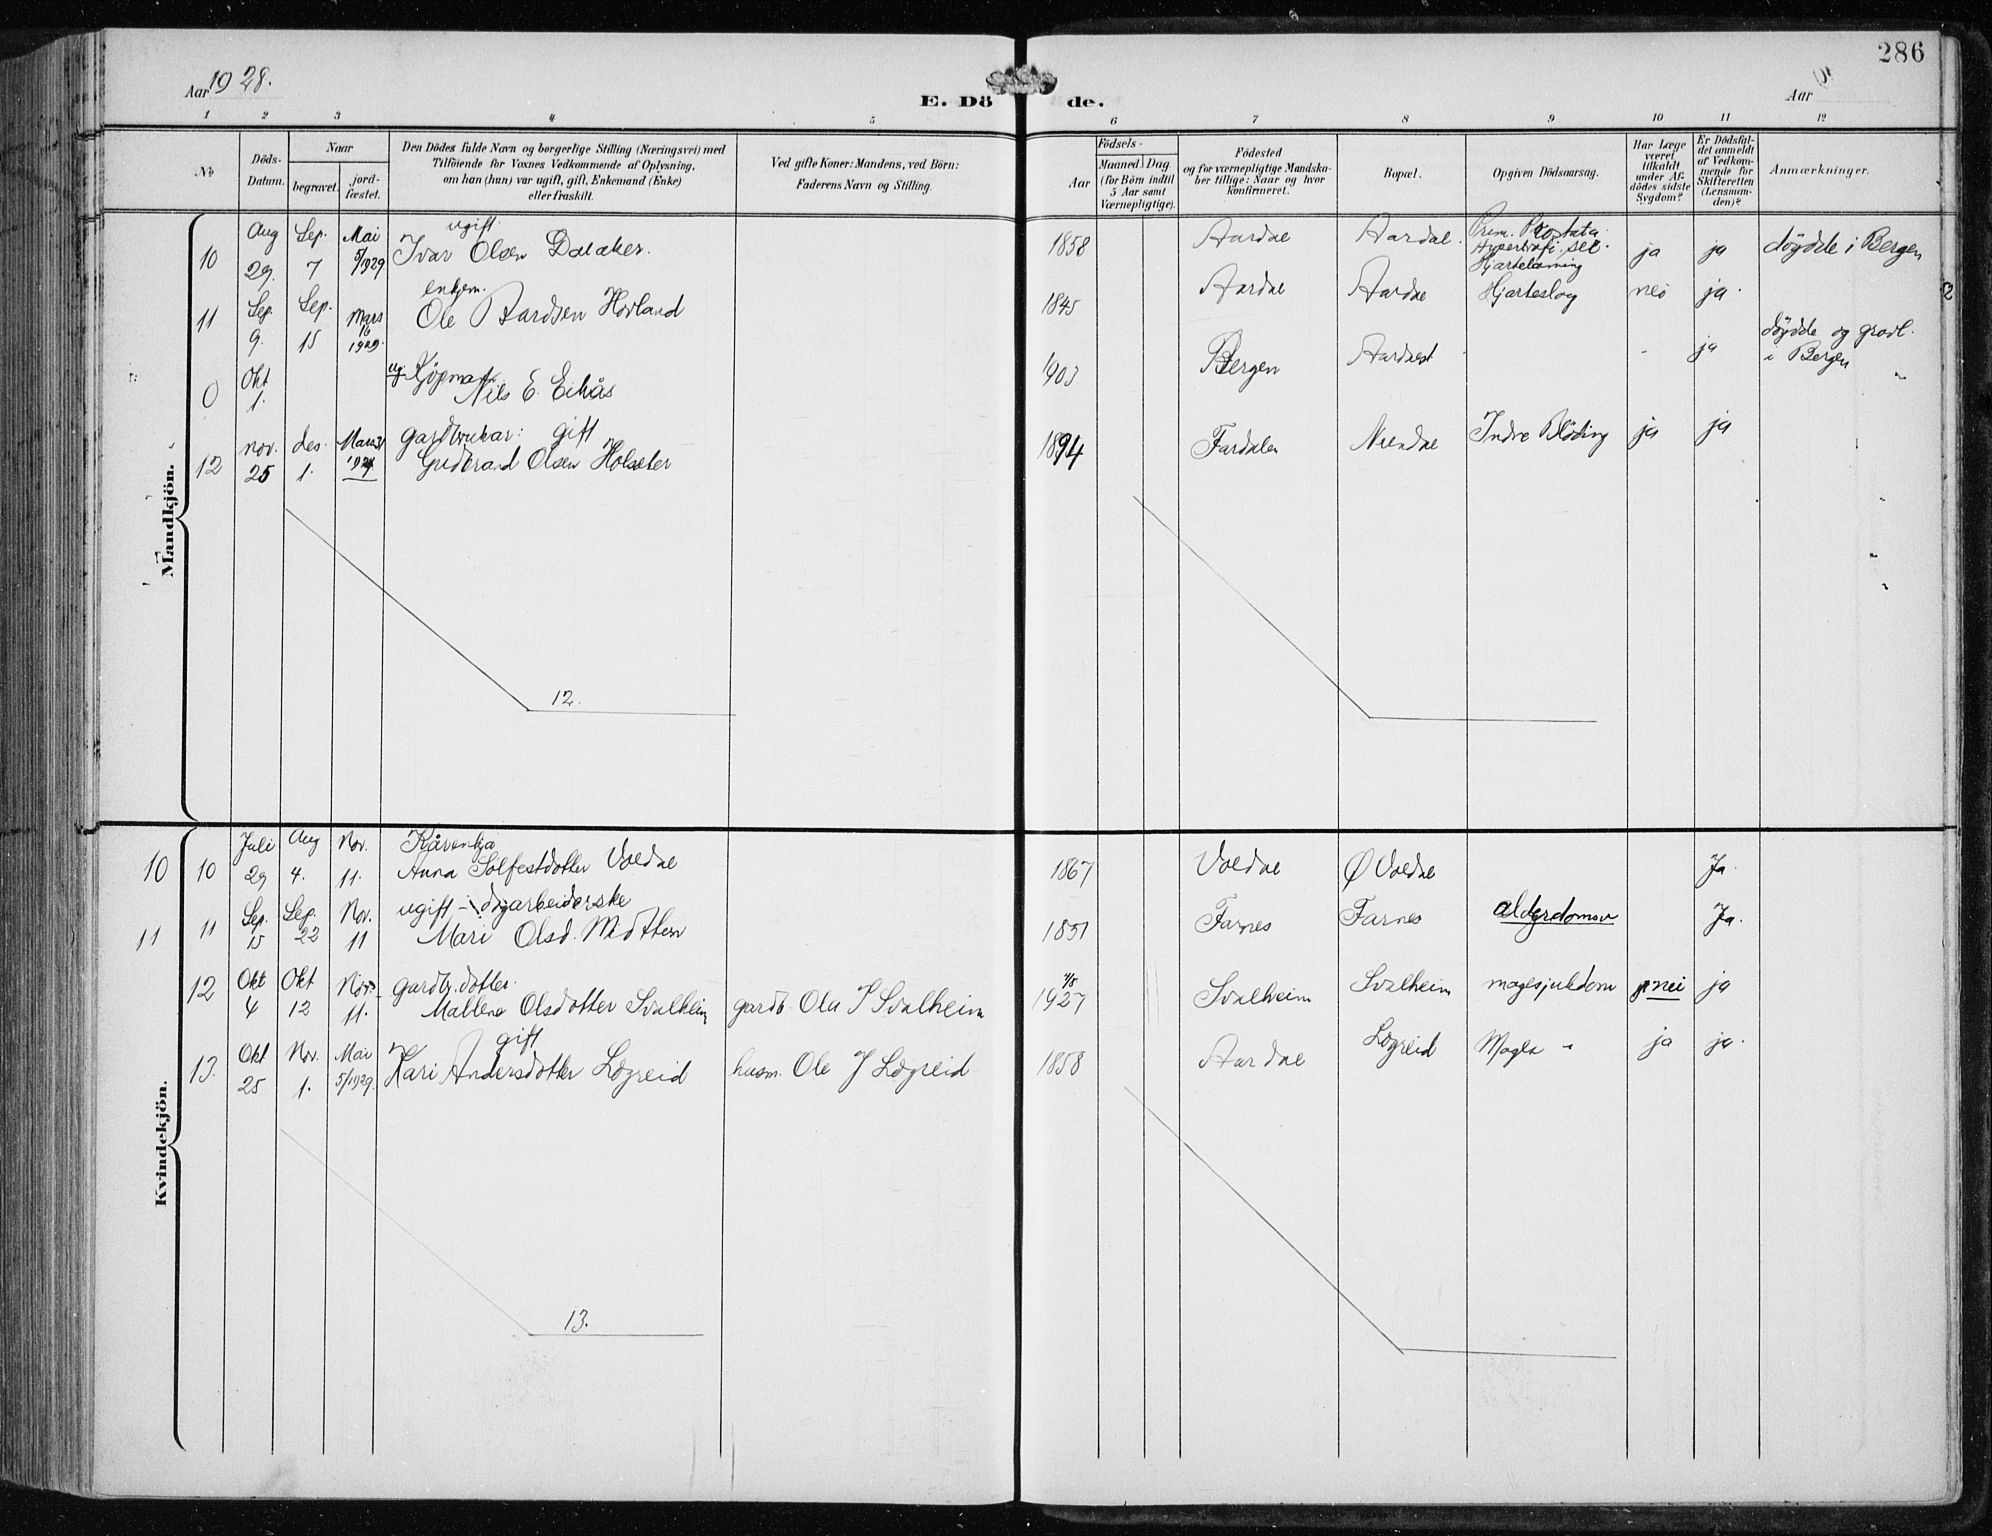 286
Aar 1928.
E. Dö de.
Aar
1 2 3 4 5 6 7 8 9 10 11 12
No
Döds-Datum.
Naar
begravet.
jord-fæstet.
Den Dödes fulde Navn og borgerlige Stilling (Næringsvei) med
Tilföiende for Voxnes Vedkommende af Oplysning,
om han (hun) var ugift, gift, Enkemand (Enke)
eller fraskilt.
Ved gifte Koner: Mandens, ved Börn:
Faderens Navn og Stilling.
Födsels-
Aar
Maaned Dag
(for Börn indtil
5 Aar samt
Værnepligtige).
Födested
og for værnepligtige Mandska-
ber tillige: Naar og hvor
konfirmeret.
Bopæl.
Opgiven Dödsaarsag.
Har Læge
været
tilkaldt
under Af-
dödes sidste
Sygdom?
Er Dödsfal-
det anmeldt
af Vedkom-
mende for
Skifteretten
(Lensman-
den)?
Anmærkninger.
Mandkjön.
ugift.
10 Aug 29. Sep. 7 Mai 5/1929 Ivar Olsen Dalaker. 1858 Aardal Aardal. Prem. Prostata Hypertrofi sec. Hjartelaming ja ja döydde i Bergen
enkjem.
11 Sep. 9. Sep. 15 Mars 16 1929. Ole Bardsen Hovland 1845 Aardal Aardal Hjarteslag nei ja.
0 Okt 1. ug. Kjøpmann. Nils E. Eikås 1903 Bergen Aardal ja döydde og gravl. i Bergen
gardbrukar: gift
12 nov. 25 des. 1. Mars Gudbrand Olsen Holseter 1894 Fardalen Nundal Indre Blöding ja ja
12.
Kvindekjön.
Kårenkja
10 10 Juli 29 Aug 4. Nov. 11. Anna Solfestdotter Voldal 1867 Voldal Ø Voldal Ja.
ugift - dagarbeiderske
11 11 Sep. 15 Sep. 22 Nov. 11 Mari Olsd. Midttun 1851 Farnes Farnes alderdomsv Ja.
gardbr. dotter.
12 Okt 4 Okt 12 Nov. 11. Mallene Olsdotter Svalheim gardb. Ola J Svalheim 1927 Svalheim Svalheim magesjukdom nei ja
gift
13. Okt 25 Nov. 1. Mai 5/1929. Kari Andersdotter Lægreid husm. Ole J Lægreid 1858 Aardal Lægreid Mage " ja ja.
13.